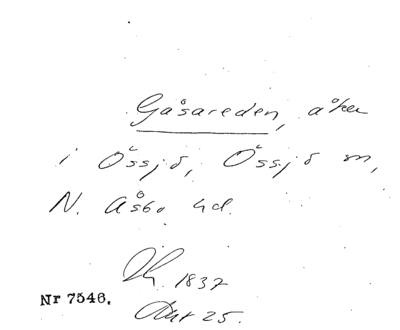 Gåsareden, åker
i Össjö, Össjö sn,
N. Åsbo hd.
1837
Nr 7546.
Akt 25.